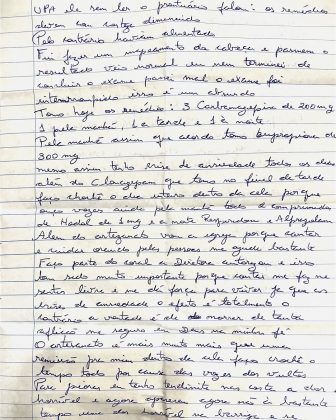 UPA ele sem ler o prontuário falou: os remédios
devem com certeza diminuido
Pelo contrário haviam aumentado
Fui fazer um mapeamento da cabeça e parmem o
resultado veio normal eu nem terminei de
concluir o exame passei mal o exame foi
interrompido isso é um absurdo
Tomo hoje os remédio: 3 Carbamazepina de 200mg
1 pela manhã, 1 a tarde e 1 à noite
Pela manhã assim que acordo tomo bupropiona de
300 mg
mesmo assim tenho crise de ansiedade todos os dias
além do Clonazepam que tomo no final da tarde
faço crochê o dia inteiro dentro da cela porque
ouço vozes ainda pela manhã tomo 2 comprimidos
de Haldol de 1 mg e a noite Risperidona e Alprazolam
Além do artezanato vou a igreja porque cantar
e cuidar orando pelas pessoas me ajuda bastante
Faço parte do coral a Diretora autorizou e isso
tem sido muito importante porque cantar me faz me
sentir livre e me dá força para viver já que as
crises de ansiedade o efeito é totalmente o
contrário a vontade é de morrer de tanta
aflição me seguro em Deus na minha fé
O artezanato é mais muito mais que uma
remissão pra mim dentro da cela faço crochê o
tempo todo por causa das vozes dos vultos
Para piorar eu tenho tendinite nas costa a dor
horrível e agora apareceu agora não à bastante
tempo uma dor horrível na barriga e se